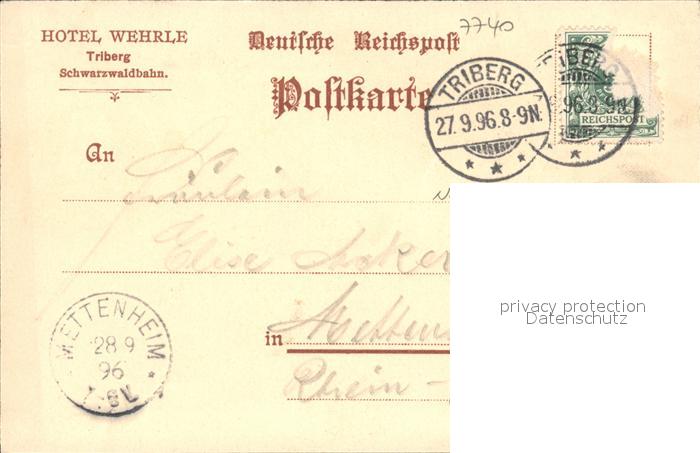 7740
HOTEL WEHRLE
Triberg
Schwarzwaldbahn.
Deutsche Reichspost
Postkarte
TRIBERG
27.9.96.8-9N.
TRIBERG
.96.8-9N.
REICHSPOST
An
Fräulein
Elise
in
Rhein-
METTENHEIM
28 9
96
privacy protection
Datenschutz